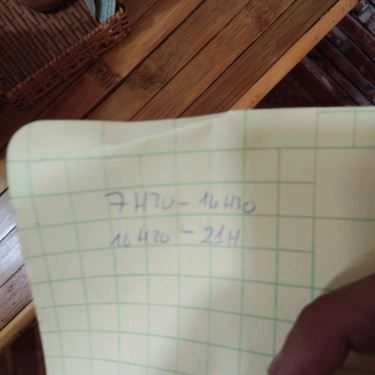 7H30 - 14H30
14H30 - 21H